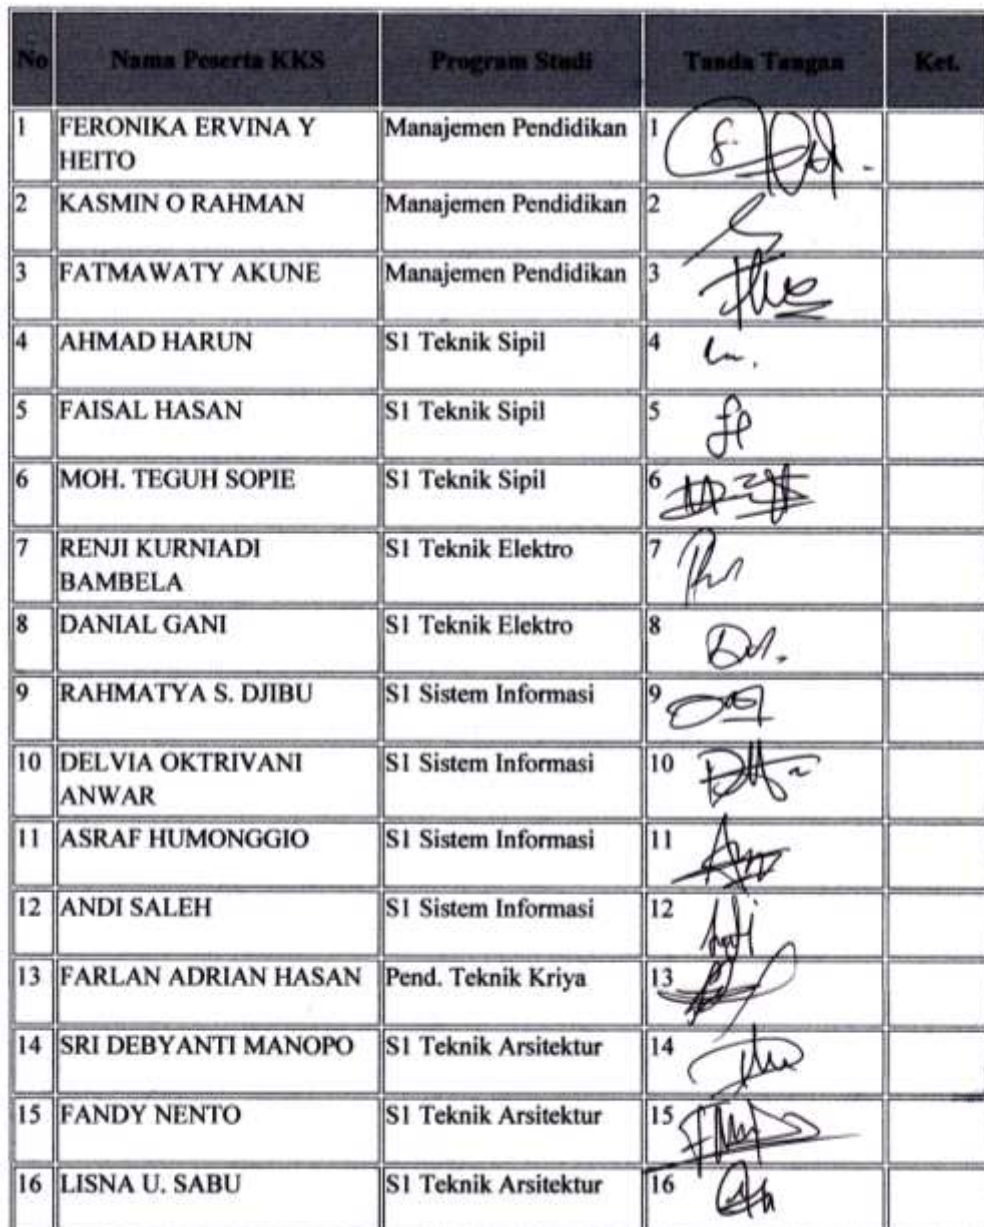 No Nama Peserta KKS Program Studi Tanda Tangan Ket.
1 FERONIKA ERVINA Y Manajemen Pendidikan 1
HEITO
2 KASMIN O RAHMAN Manajemen Pendidikan 2
3 FATMAWATY AKUNE Manajemen Pendidikan 3
4 AHMAD HARUN S1 Teknik Sipil 4
5 FAISAL HASAN S1 Teknik Sipil 5
6 MOH. TEGUH SOPIE S1 Teknik Sipil 6
7 RENJI KURNIADI S1 Teknik Elektro 7
BAMBELA
8 DANIAL GANI S1 Teknik Elektro 8
9 RAHMATYA S. DJIBU S1 Sistem Informasi 9
10 DELVIA OKTRIVANI S1 Sistem Informasi 10
ANWAR
11 ASRAF HUMONGGIO S1 Sistem Informasi 11
12 ANDI SALEH S1 Sistem Informasi 12
13 FARLAN ADRIAN HASAN Pend. Teknik Kriya 13
14 SRI DEBYANTI MANOPO S1 Teknik Arsitektur 14
15 FANDY NENTO S1 Teknik Arsitektur 15
16 LISNA U. SABU S1 Teknik Arsitektur 16